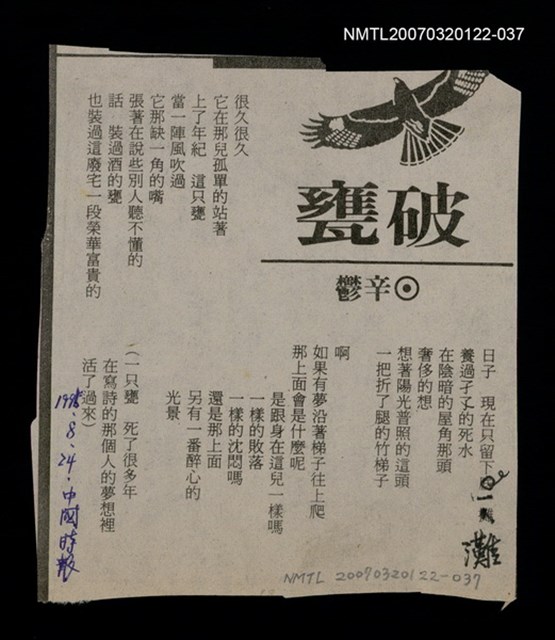 NMTL20070320122-037
破甕
⊙辛鬱
很久很久
它在那兒孤單的站著
上了年紀 這只甕
當一陣風吹過
它那缺一角的嘴
張著在說些別人聽不懂的
話 裝過酒的甕
也裝過這廢宅一段榮華富貴的
日子 現在只留下一灘
養過孑孓的死水
在陰暗的屋角那頭
奢侈的想
想著陽光普照的這頭
一把折了腿的竹梯子
啊
如果有夢沿著梯子往上爬
那上面會是什麼呢
是跟身在這兒一樣嗎
一樣的敗落
一樣的沈悶嗎
還是那上面
另有一番醉心的
光景
(一只甕 死了很多年
在寫詩的那個人的夢想裡
活了過來)
1995.8.24.中國時報
NMTL 20070320122-037